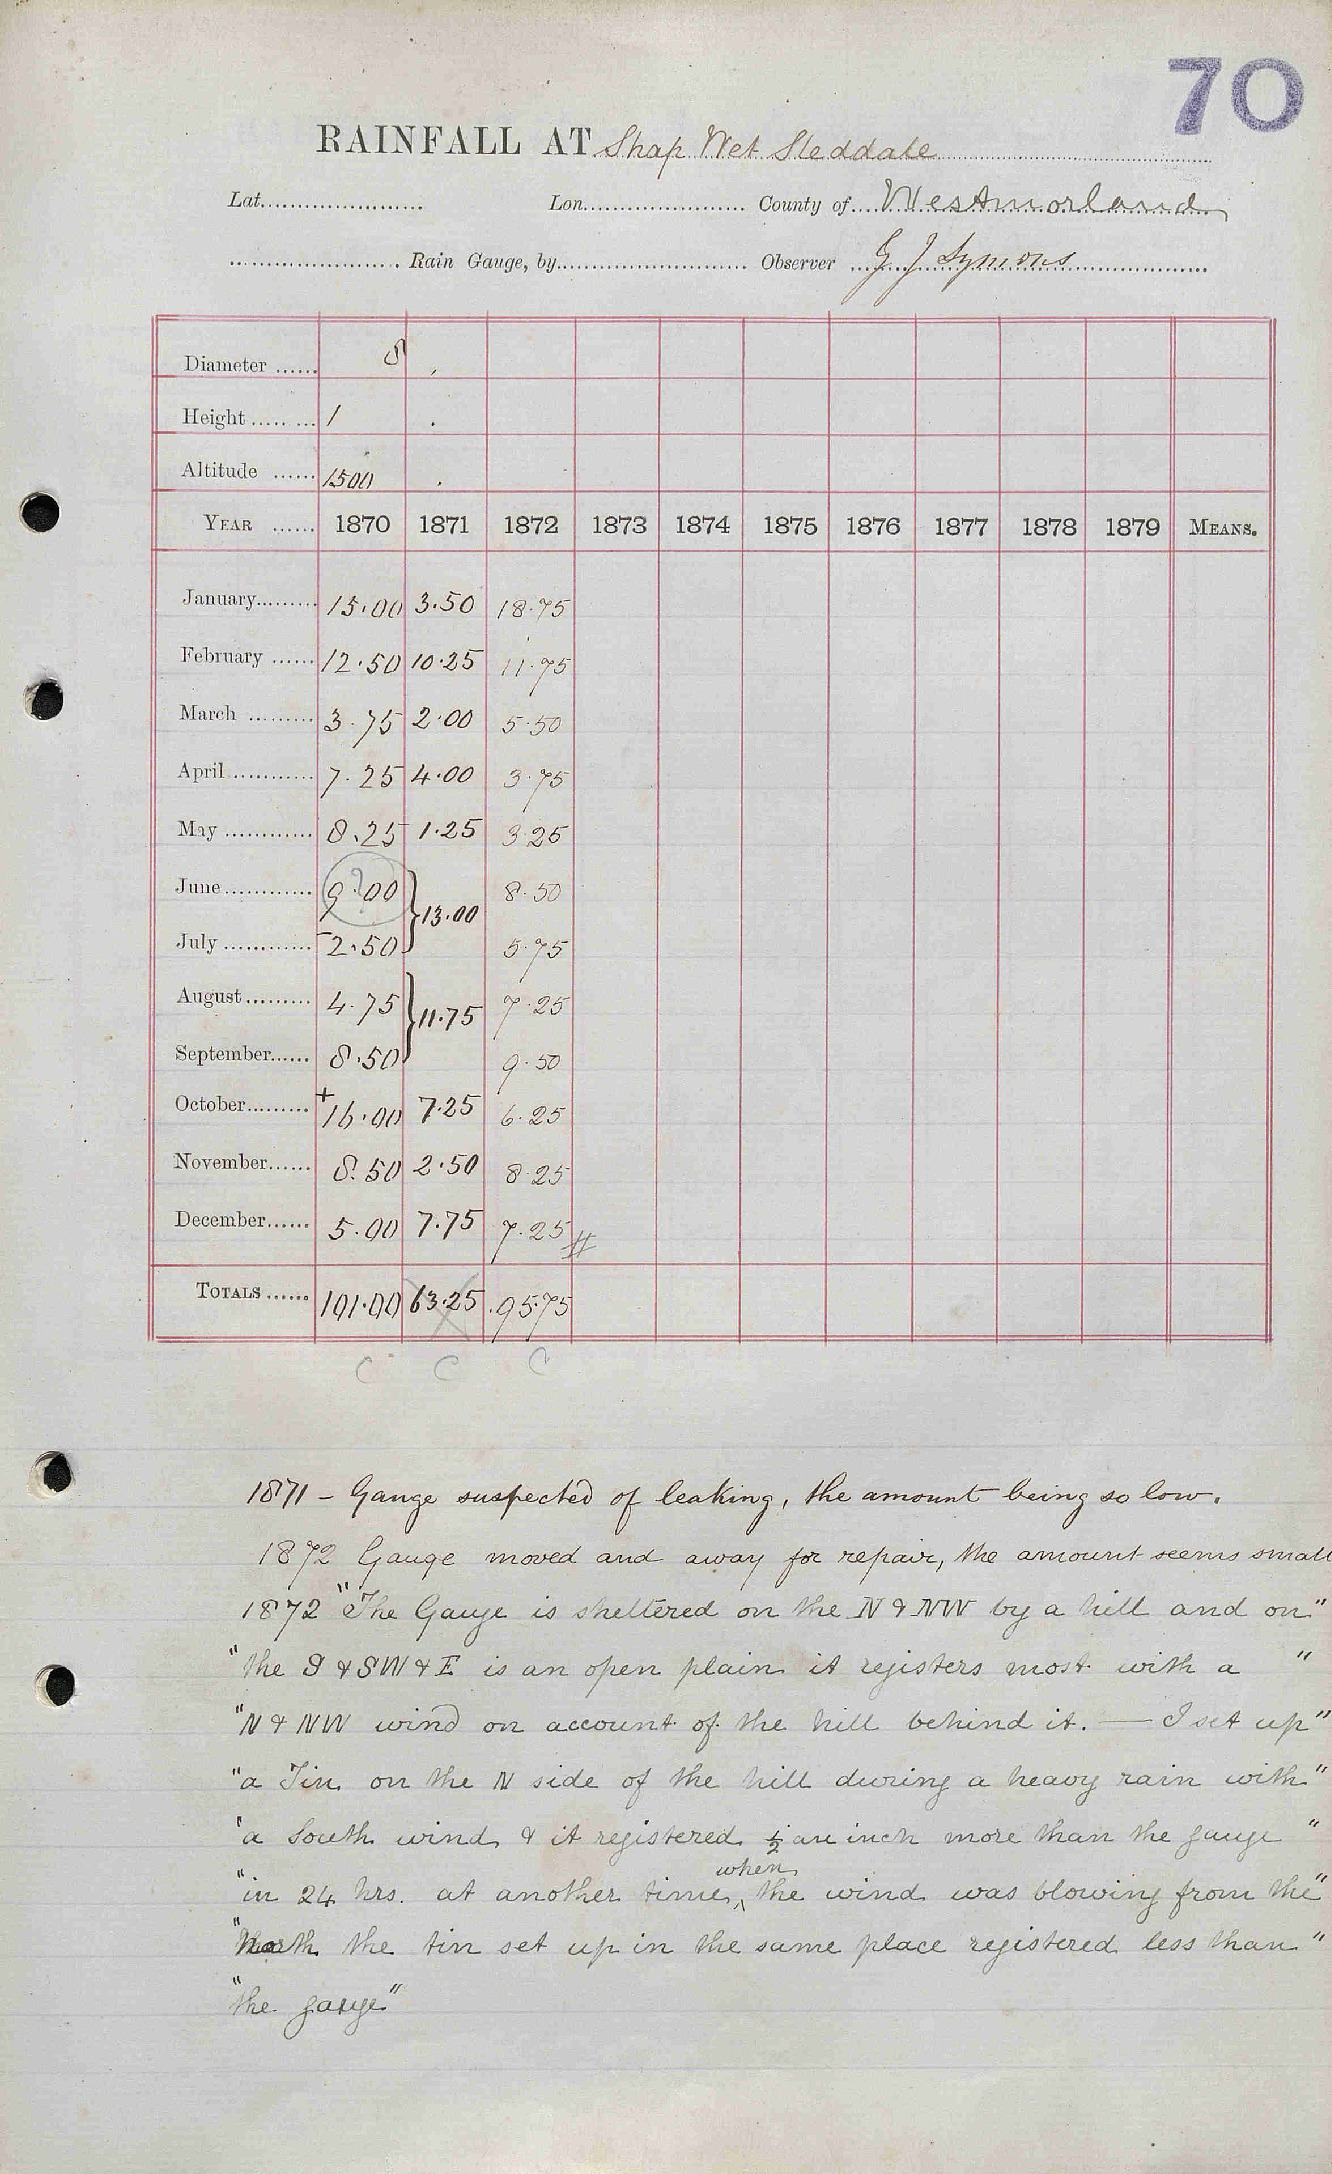 70
RAINFALL AT Shap Wet Sleddale
Lat. Lon. County of Westmorland
Rain Gauge, by Observer G J Symons
Diameter 8
Height 1
Altitude 1500
YEAR 1870 1871 1872 1873 1874 1875 1876 1877 1878 1879 MEANS.
January 15.00 3.50 18.75
February 12.50 10.25 11.75
March 3.75 2.00 5.50
April 7.25 4.00 3.75
May 8.25 1.25 3.25
June 9.00 ? 8.50
} 13.00
July 2.50 5.75
August 4.75 7.25
} 11.75
September 8.50 9.50
October + 16.00 7.25 6.25
November 8.50 2.50 8.25
December 5.00 7.75 7.25 #
TOTALS 101.00 63.25 95.75
C C C
1871 – Gauge suspected of leaking, the amount being so low.
1872 Gauge moved and away for repair, the amount seems small
1872 "The Gauge is sheltered on the N & NW by a hill and on"
"the S & SW & E is an open plain it registers most with a "
"N & NW wind on account of the hill behind it. — I set up"
"a Tin on the N side of the hill during a heavy rain with"
"a South wind & it registered ½ an inch more than the gauge "
"in 24 hrs. at another time when the wind was blowing from the"
"North the tin set up in the same place registered less than"
"the gauge"